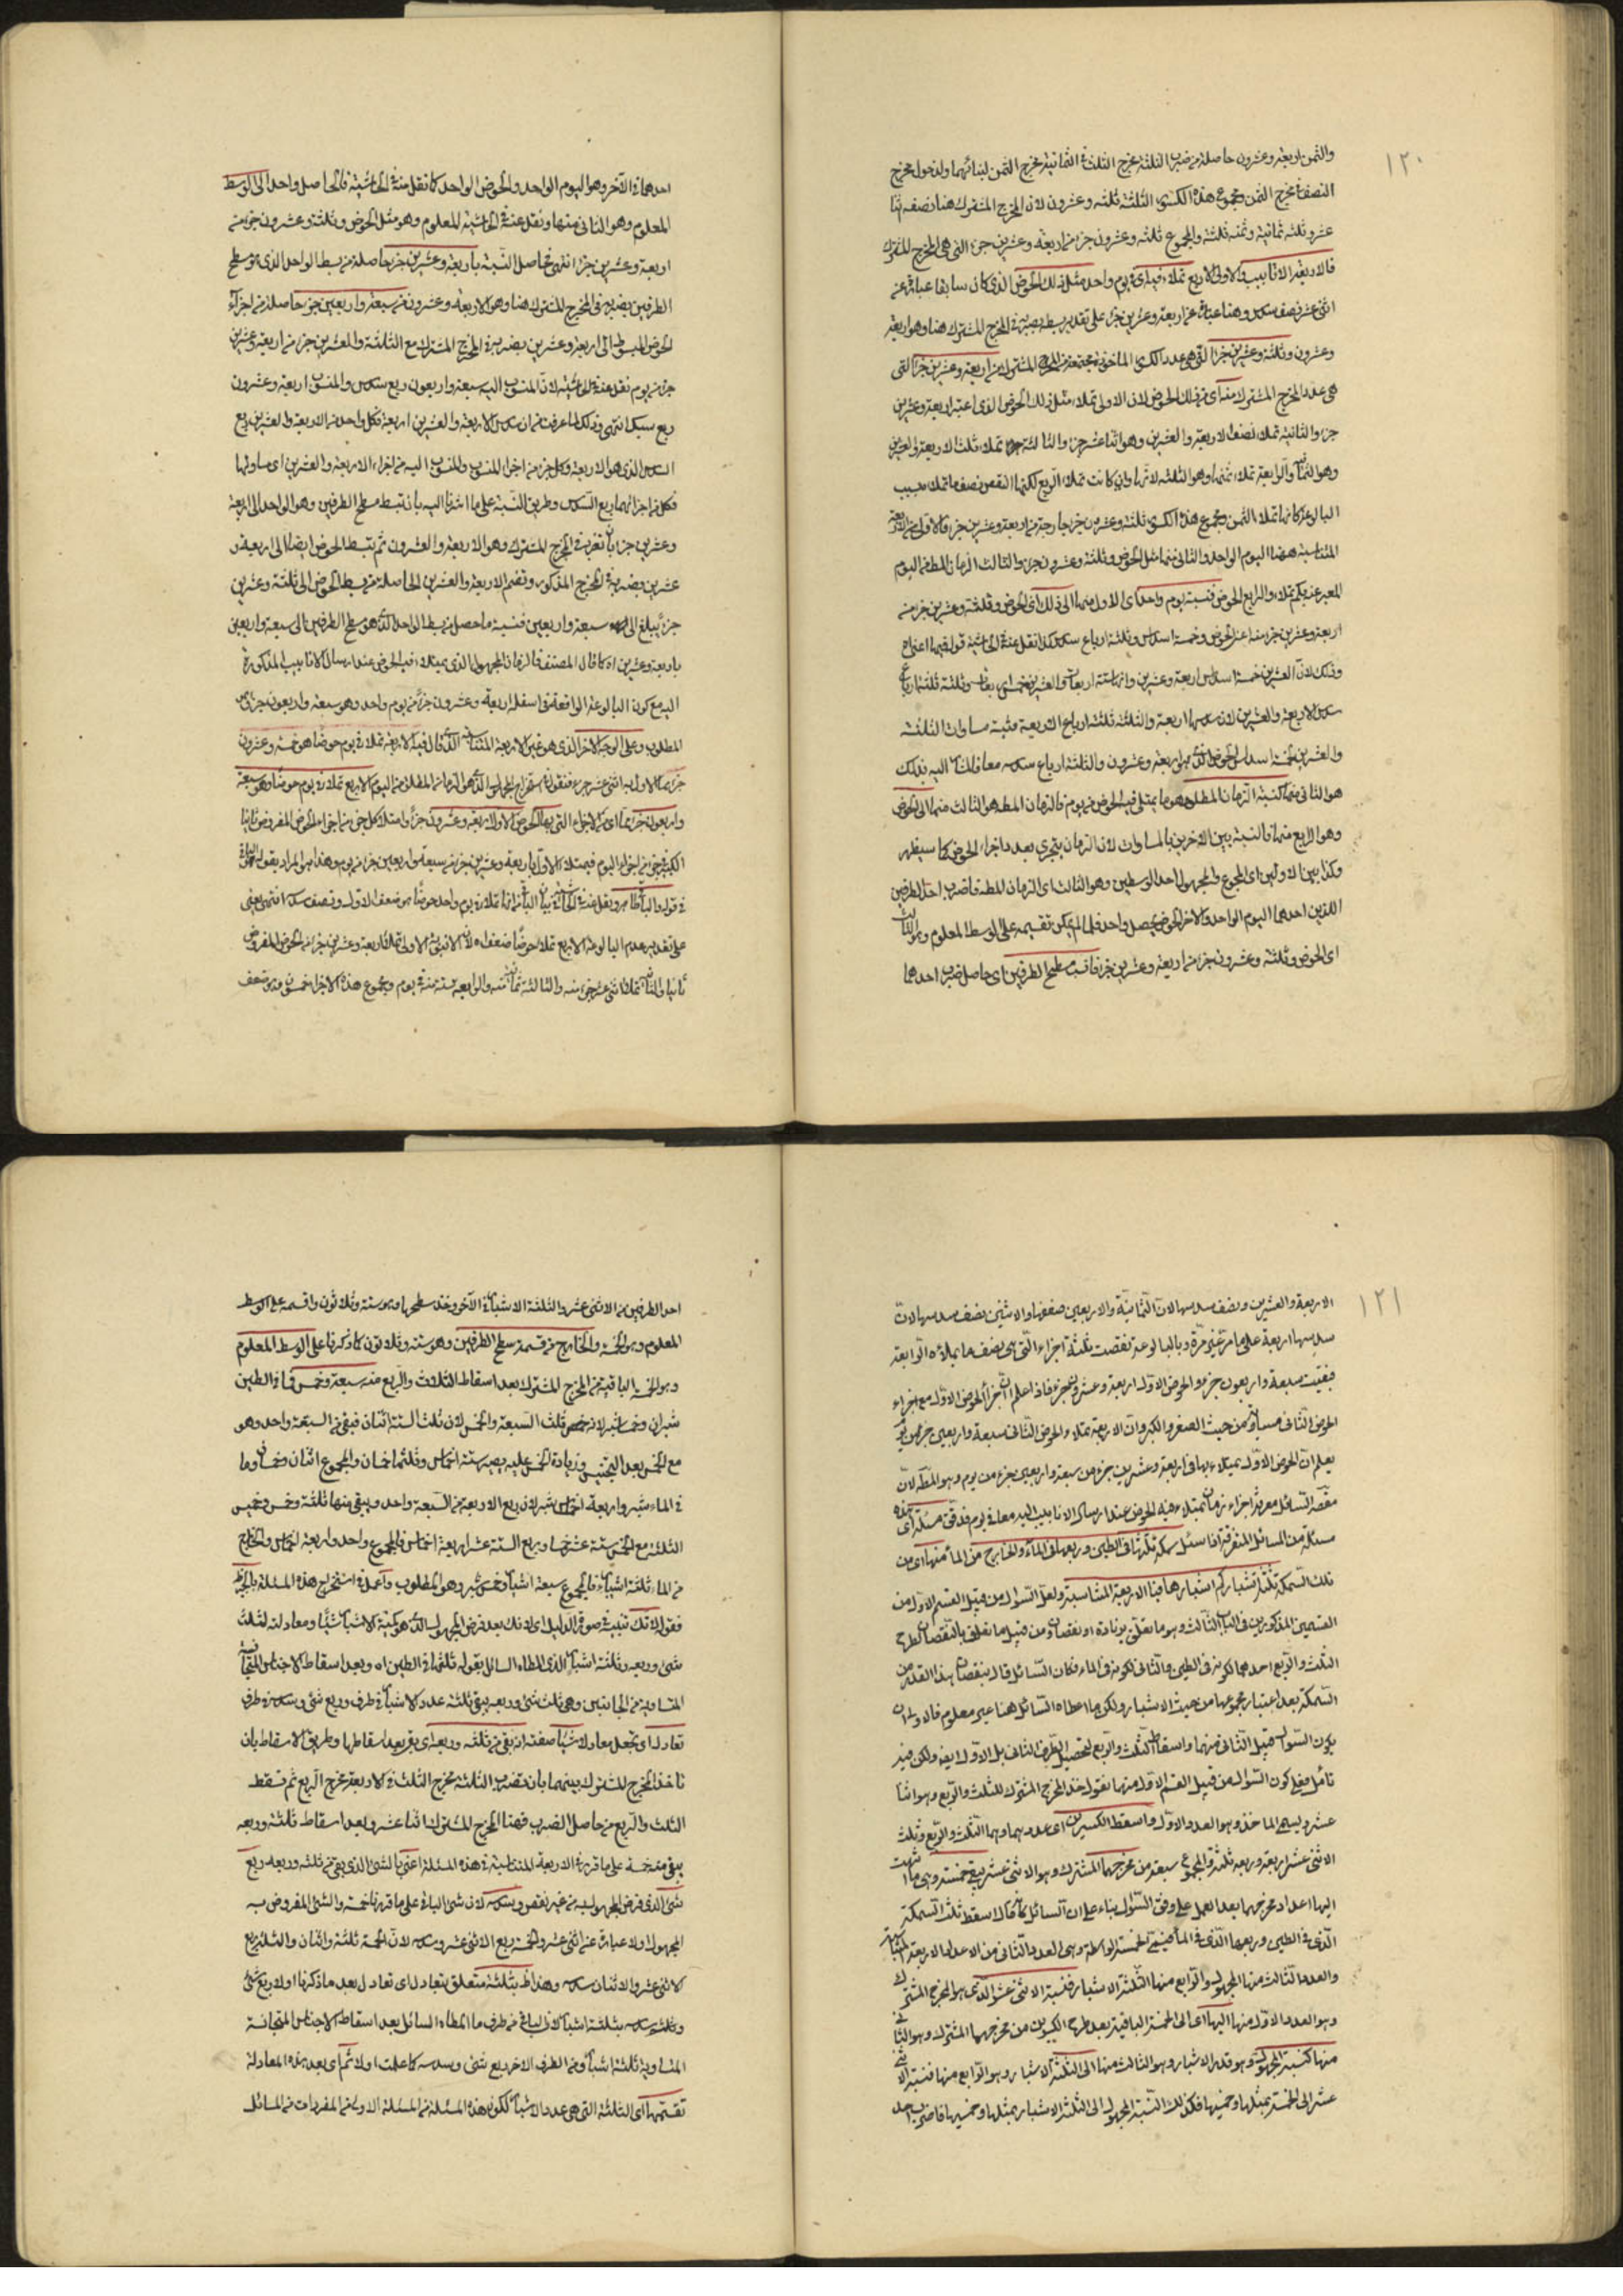 ١٢٠
والثمن اربعة وعشرون حاصلة من ضرب الثلثة مخرج الثلث في الثمانية مخرج الثمن لتباينهما ولدخول مخرج
النصف في مخرج الثمن ومجموع هذه الكسور الثلثة ثلثة وعشرون لان المخرج المشترك هنا نصفه اثنا
عشر وثلثه ثمانية وثمنه ثلثة والمجموع ثلثة وعشرون جزء من اربعة وعشرين جزء التي هي المخرج المشترك
فالاربعة الانابيب والاولى الاربع تملاء فيه اى في يوم واحد مثل ذلك الحوض الذي كان سابقا عبارة عن
اثنى عشر نصف سدس وهنا عبارة عن اربعة وعشرين جزء على تقدير بسطه بضربه في المخرج المشترك هنا وهو اربعة
وعشرون وثلثة وعشرين جزء التي هي عدد الكسور الماخوذة مجتمعة من المخرج المشترك من اربعة وعشرين جزء التي
هي عدد المخرج المشترك منه اى من ذلك الحوض لان الاولى تملاء مثل ذلك الحوض الذي اعتبر اربعة وعشرين
جزء والثانية تملاء نصف الاربعة والعشرين وهو اثنا عشر جزء والثالثة تملاء ثلث الاربعة والعشرين
وهو الثمانية والرابعة تملاء ثمنها وهو الثلثة لانها وان كانت تملاء الربع لكنها انقص نصف ما تملاء بسبب
البالوعة كانها تملاء الثمن ومجموع هذه الكسور ثلثة وعشرون جزء خارجة من اربعة وعشرين جزء فالاول من الاربعة
المتناسبة ههنا اليوم الواحد والثاني منها مثل الحوض وثلثة وعشرون جزء والثالث الزمان المطلوب اليوم
المعبر عنه بكم تملاء والرابع الحوض فنسبة يوم واحد اى الاول منها الى ذلك اى الحوض وثلثة وعشرين جزء من
اربعة وعشرين جزء منه اعني الحوض وخمسة اسداس وثلثة ارباع سدس كذا نقل عنه في الحاشية قوله فيها اعني
وذلك لان العشرين خمسة اسداس اربعة وعشرين
سدس الاربعة والعشرين لان سدسها اربعة والثلثة ثلثة ارباع الاربعة
والعشرين خمسة اسداس الحوض اربعة وعشرون والثلثة ارباع سدسه
هو الثاني منها كنسبة الزمان المطلوب وهو ما يمتلي فيه الحوض من يوم فالزمان المطلوب هو الثالث منها الى الحوض
وهو الرابع منها فالنسبة بين الاخرين بالمساوات لان الزمان يتجزى بعدد اجزاء الحوض كما سيظهر
وكذا بين الاولين اى المجموع والمجهول احد الوسطين وهو الثالث اى الزمان المطلوب فاضرب احد الطرفين
اللذين احدهما اليوم الواحد والاخر الحوض يحصل واحد فلم يمكن تقسيمه على الوسط المعلوم وهو الثاني
اى الحوض وثلثة وعشرون جزء من اربعة وعشرين جزء فانسب مسطح الطرفين اى حاصل ضرب احدهما
احدهما في الآخر وهو اليوم الواحد والحوض الواحد كما نقل عنه في الحاشية فالحاصل واحد الى الوسط
المعلوم وهو الثاني منها ونقل عنه في الحاشية المعلوم وهو مثل الحوض وثلثة وعشرون جزء من
اربعة وعشرين جزء انتهى فحاصل النسبة باربعة وعشرين جزء حاصلة من بسط الواحد الذي هو مسطح
الطرفين بضربه في المخرج المشترك هنا وهو الاربعة وعشرون من سبعة واربعين جزء حاصلة من اجزاء
الحوض المبسوط الى اربعة وعشرين بضربه في المخرج المشترك مع الثلثة والعشرين جزء من اربعة وعشرين
جزء من يوم نقل عنه في الحاشية لان المنسوب اليه سبعة واربعون ربع سدس والمنسوب اربعة وعشرون
ربع سدس انتهى وذلك لما عرفت من ان سدس الاربعة والعشرين اربعة فكل واحد من الاربعة والعشرين ربع
السدس الذي هو الاربعة وكل جزء من اجزاء المنسوب والمنسوب اليه من اجزاء الاربعة والعشرين اى مساو لها
فكل من اجزائهما ربع السدس وطريق النسبة على ما اشرنا اليه بان تبسط مسطح الطرفين وهو الواحد الى اربعة
وعشرين جزء بان تضربه في المخرج المشترك وهو الاربعة والعشرون ثم تبسط الحوض ايضا الى اربعة و
عشرين بضربه في المخرج المذكور وتضم الاربعة والعشرين الحاصلة من بسط الحوض الى ثلثة وعشرين
جزء يبلغ الى سبعة واربعين فنسبة ما حصل من بسط الواحد الذي هو مسطح الطرفين الى سبعة واربعين
باربعة وعشرين اه كما قال المصنف فالزمان المجهول الذي يمتلاء فيه الحوض عند ارسال الانابيب المذكورة
اليه مع كون البالوعة الواقعة في اسفله اربعة وعشرون جزء من يوم واحد وهو سبعة واربعون جزء وهو
المطلوب وعلى الوجه الاخر الذي هو غير الاربعة المتناسبة الذي قال فيه الاربعة تملاء في يوم حوضا هو خمسة وعشرون
جزء مما الاول به اثنى عشر جزء فنقول في استخراج المجهول الذي هو الزمان المطلوب من اليوم الاربع تملاء في يوم حوضا هو سبعة
واربعون جزء مما اى من الاجزاء التي بها الحوض الاول اربعة وعشرون جزء وامتلاء كل جزء من اجزاء الحوض المفروض ثانيا
الكبير في جزء من اجزاء اليوم فيمتلاء الاول في اربعة وعشرين جزء من سبعة واربعين جزء من يوم وهذا هو المراد بقوله
في قوله والباقي ظاهر ونقل عنه في الحاشية بيان الباقي انها تملاء في يوم واحد حوضا هو ضعف الاول ونصف سدسه انتهى يعني
على تقدير عدم البالوعة الاربع تملاء حوضا ضعفه لان الانبوبة الاولى تملاء اربعة وعشرين جزء من الحوض المفروض
ثانيا والثانية تملاء اثنى عشر جزء منه والثالثة ثمانية منه والرابعة ستة منه في يوم ومجموع هذه الاجزاء خمسون منه ضعف
١٢١
الاربعة والعشرين ونصف سدسها لان الثمانية والاربعين ضعفها والاثنين نصف سدسها لان
سدسها اربعة على ما مر غير مرة وبالبالوعة نقصت ثلثة اجزاء التي هي نصف ما يملاءه الرابعة
فبقيت سبعة واربعون جزء والحوض الاول اربعة وعشرون جزء فاذا علم ان اجزاء الحوض الاول مع اجزاء
الحوض الثاني متساوية من حيث الصغر والكبر وان الاربعة تملاء الحوض الثاني سبعة واربعين جزء من يوم
يعلم ان الحوض الاول يمتلاء بها في اربعة وعشرين جزء من سبعة واربعين جزء من يوم وهو المطلوب لان
مقصد السائل معرفة اجزاء زمان يمتلاء فيه الحوض عند ارسال الانابيب اليه معا في يوم فدقق مسئلة اى هذه
مسئلة من المسائل المتفرقة اذا سئل سمكة ثلثها في الطين وربعها في الماء والخارج من الماء منها اى من
تلك السمكة ثلثة اشبار كم اشبارها فبالاربعة المتناسبة ولعل السؤال من قبيل القسم الاول من
القسمين المذكورين في الباب الثالث وهو ما يتعلق بزيادة او نقصان ومن قبيل ما يتعلق بالنقصان لطرح
الثلث والربع احدهما لكونه في الطين والثاني لكونه في الماء فكان السائل قال بنقصان هذا القدر من
السمكة بعد اعتبار مجموعها من حيث الاشبار ولكن ما اعطاه السائل هنا غير معلوم فالاولى ان
يكون السؤال من قبيل الثاني منهما واسقاط الثلث والربع لتحصيل الطرف الثاني بل الاول ايضا ولكن فيه
تامل فعلى كون السؤال من قبيل القسم الاول منها نقول خذ المخرج المشترك للثلث والربع وهو اثنا
عشر ويسمى الماخذ وهو العدد الاول واسقط الكسرين اى عددهما وهما الثلث والربع وثلث
الاثنى عشر اربعة وربعه ثلثة والمجموع سبعة من مخرجهما المشترك وهو الاثنى عشر يبقى خمسة وهي ما انتهت
اليها اعداد مخرجهما بعد العمل على وفق السؤال بناء على ان السائل كانه قال اسقط ثلث السمكة
الذي في الطين وربعها الذي في الماء فيبقى الخمسة الواسطة وهي العدد الثاني من الاعداد الاربعة المتناسبة
والعدد الثالث منها المجهول والرابع منها الثلثة الاشبار فنسبة الاثنى عشر الذي هو المخرج المشترك
وهو العدد الاول منها اليها اى الى الخمسة الباقية بعد طرح الكسرين من مخرجهما المشترك وهو الثاني
منها كنسبة المجهول وهو قدر الاشبار وهو الثالث منها الى الثلثة الاشبار وهو الرابع منها فنسبة الاثنى
عشر الى الخمسة بمثليها وخمسيها فكذلك النسبة المجهول الى الثلثة الاشبار بمثليها وخمسيها فاضرب احد
احد الطرفين من الاثنى عشر والثلثة الاشبار في الآخر وخذ مسطحهما وهو ستة وثلاثون واقسمه على الوسط
المعلوم وهو الخمسة والخارج من قسمة مسطح الطرفين وهو ستة وثلاثون كما ذكرنا على الوسط المعلوم
وهو الخمسة الباقية من المخرج المشترك بعد اسقاط الثلاث والربع منه سبعة وخمس فما في الطين
شبران وخمسا شبر لانه ثلث السبعة والخمس لان ثلث الستة اثنان فبقي من السبعة واحد وهو
مع الخمس بعد التجنيس وزيادة الخمس عليه يصير ستة اخماس وثلثها خمسان والمجموع اثنان وخمسان وما
في الماء شبر واربعة اخماس شبر لان ربع الاربعة من السبعة واحد ويبقى منها ثلثة وخمس وخمس
الثلثة مع الخمس ستة عشر خمسا وربع الستة عشر اربعة اخماس فالمجموع واحد واربعة اخماس والخارج
من الماء ثلثة اشبار فالمجموع سبعة اشبار وخمس شبر وهو المطلوب واعمل في استخراج هذه المسئلة بالجبر
فقولك لانك تثبت صورة الدليل اى لانك بعد فرض المجهول الذي هو كمية الاشبار شيئا ومعادلته لثلث
شئ وربعه وثلثة اشبار الذي اعطاه السائل بقوله ثلثها في الطين اه وبعد اسقاط الاجناس المتجانسة
المتساوية من الجانبين وهي ثلث شئ وربعه يبقى ثلثة عدد الاشبار في طرف وربع شئ وسدسه في طرف
تعادل اى تجعل معادلا شيئا صفته انه بقي من ثلثه وربعه اى بقي بعد اسقاطها وطريق الاسقاط بان
تاخذ المخرج المشترك بينهما بان تضرب الثلثة مخرج الثلث في الاربعة مخرج الربع ثم تسقط
الثلث والربع من حاصل الضرب فهنا المخرج المشترك اثنا عشر وبعد اسقاط ثلثه وربعه
يبقى منه خمسة على ما قررنا في الاربعة المتناسبة في هذه المسئلة اعني بالشئ الذي بقي من ثلثه وربعه ربع
شئ الذي فرض المجهول ايه من غير نقص وسدسه لان شئ الباقي على ما قررنا خمسة والشئ المفروض به
المجهول اولا عبارة عن اثنى عشر والخمسة ربع الاثنى عشر وسدسه لان الخمسة ثلثة واثنان والثلثة ربع
الاثنى عشر والاثنان سدسه وهذا ظاهر بثلثة متعلق بتعادل اى تعادل بعد ما ذكرنا اولا ربع شئ
وسدسه بثلثة اشبار لان الباقي من طرف ما اعطاه السائل بعد اسقاط الاجناس المتجانسة
المتساوية ثلثة اشبار ومن الطرف الاخر ربع شئ وسدسه كما علمت اولا ثم اى بعد هذه المعادلة
تقسمها اى الثلثة التي هي عدد الاشبار لكون هذه المسئلة من المسئلة الاولى من المفردات من المسائل